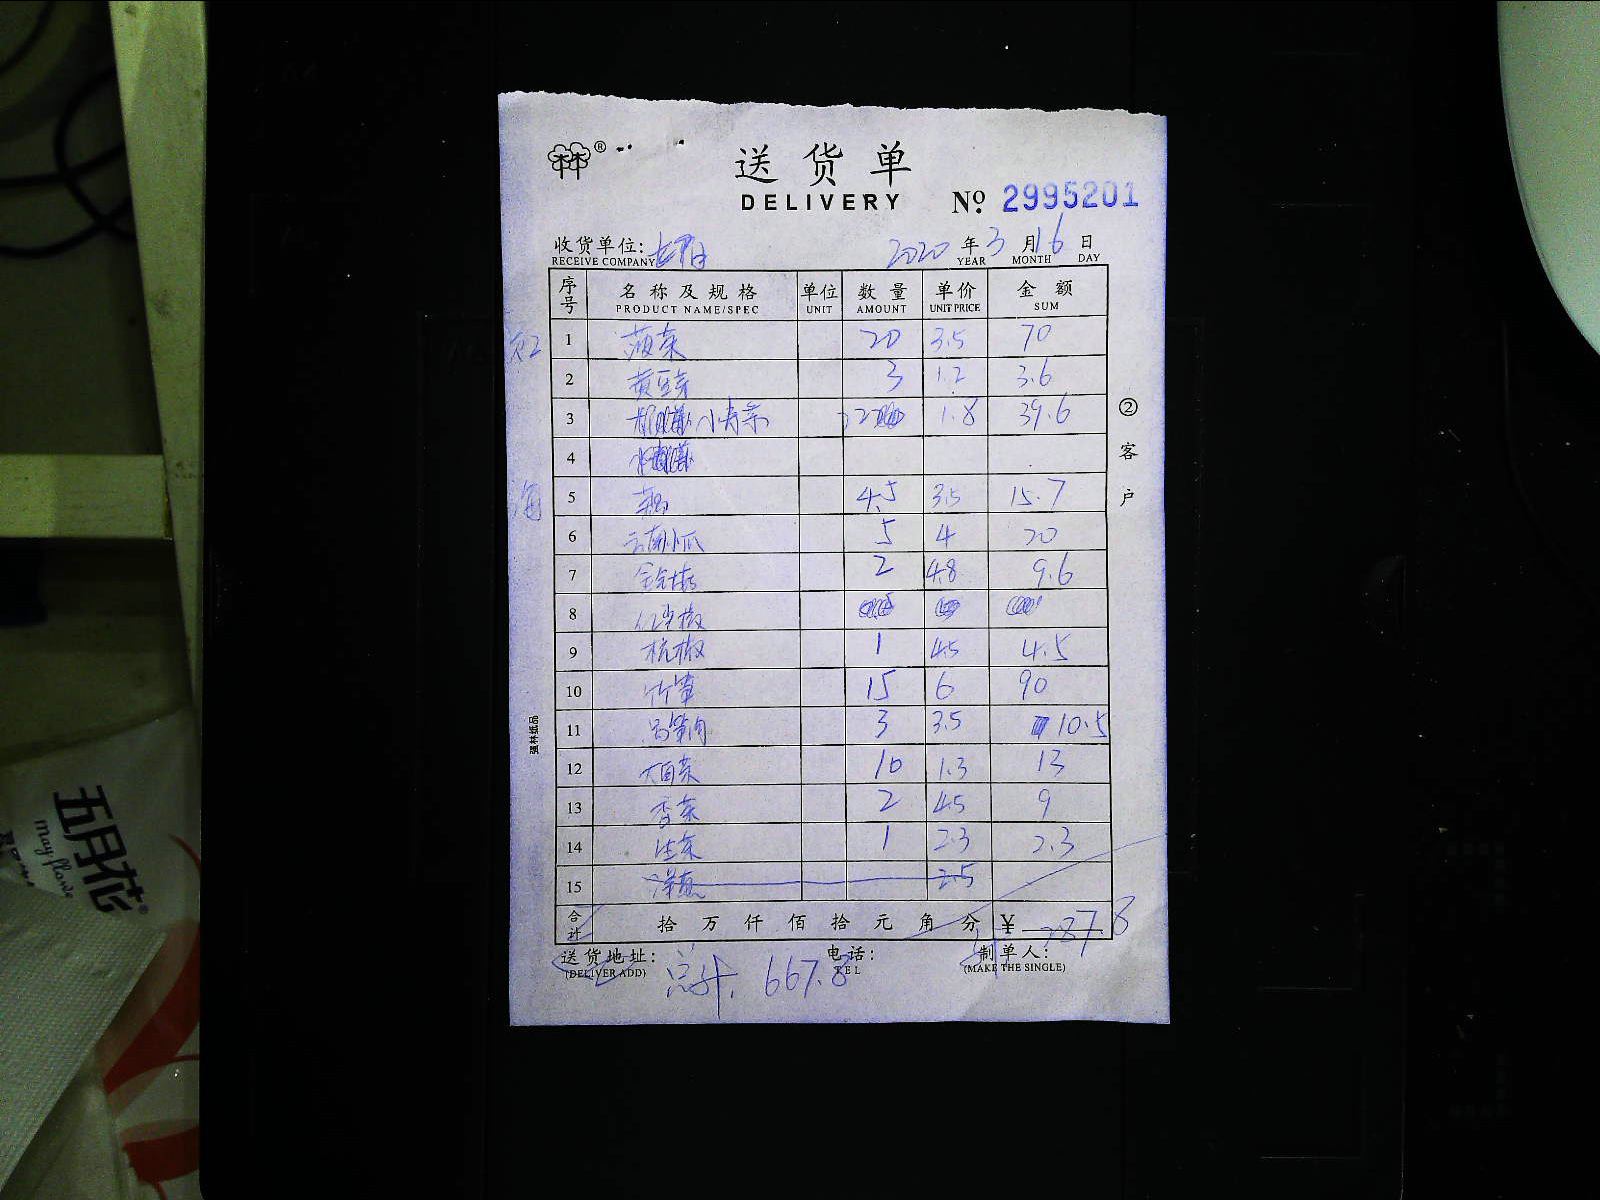 送货单
DELIVERY
No. 2995201
收货单位:
2020 年 3 月 16 日
RECEIVE COMPANY YEAR MONTH DAY
序号 名称及规格 单位 数量 单价 金额
PRODUCT NAME/SPEC UNIT AMOUNT UNIT PRICE SUM
1 菠菜 20 3.5 70
2 黄豆芽 3 1.2 3.6
3 小青菜 22 1.8 39.6
4
海 5 4.5 3.5 15.7
6 云南小瓜 5 4 20
7 金针菇 2 4.8 9.6
8
9 杭椒 1 4.5 4.5
10 竹笋 15 6 90
11 莴笋肉 3 3.5 10.5
12 大白菜 10 1.3 13
13 香菜 2 4.5 9
14 生菜 1 2.3 2.3
15 洋葱 2.5
合计 拾 万 仟 佰 拾 元 角 分 ¥ 287.8
送货地址: 电话: 制单人:
(DELIVER ADD) TEL (MAKE THE SINGLE)
总计. 667.8
② 客户
强林纸品
五月花
may flower